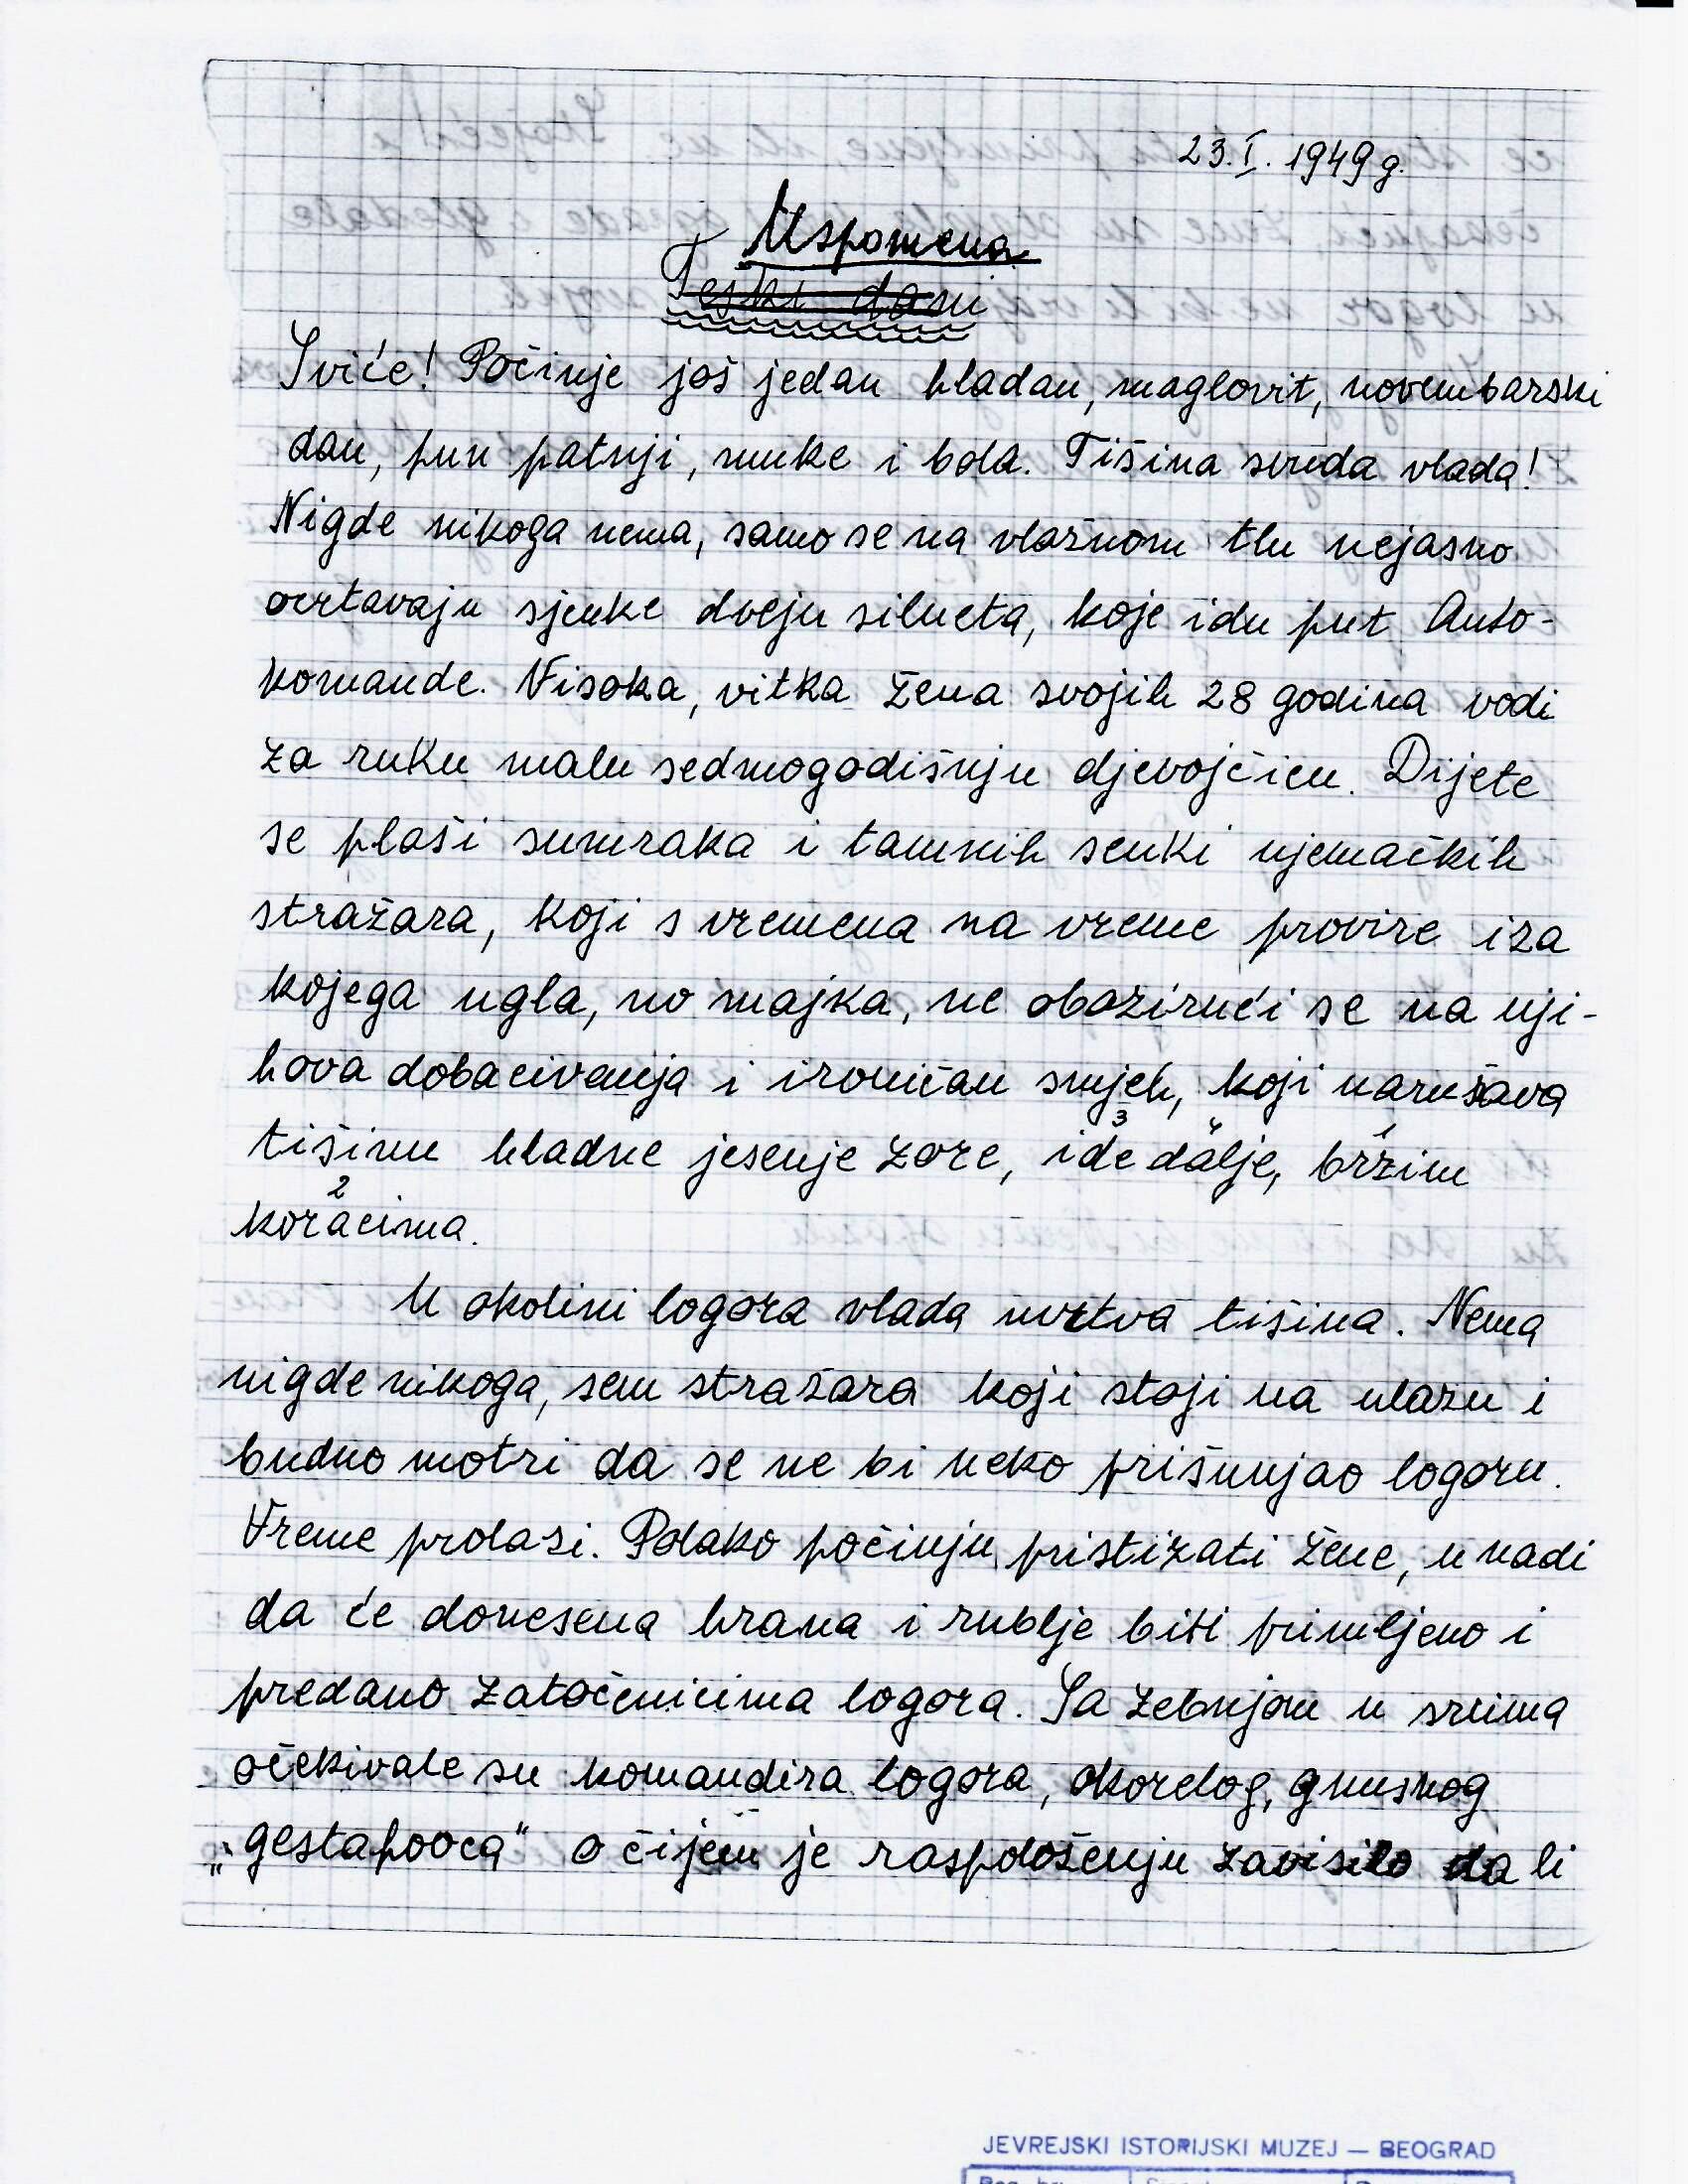 23. I. 1949 g.
Uspomena
Teški dani
Sviće! Počinje još jedan hladan, maglovit, novembarski
dan, pun patnji, muke i bola. Tišina svuda vlada!
Nigde nikoga nema, samo se na vlažnom tlu nejasno
ocrtavaju sjenke dveju silueta, koje idu put Auto-
komande. Visoka, vitka žena svojih 28 godina vodi
za ruku malu sedmogodišnju djevojčicu. Dijete
se plaši sumraka i tamnih senki njemačkih
stražara, koji s vremena na vreme provire iza
kojega ugla, no majka, ne obazirući se na nji-
hova dobacivanja i ironičan smjeh, koji narušava
tišinu hladne jesenje zore, ide dalje, bržim
3 4 1
koracima.
2
U okolini logora vlada mrtva tišina. Nema
nigde nikoga, sem stražara koji stoji na ulazu i
budno motri da se ne bi neko prišunjao logoru.
Vreme prolazi. Polako počinju pristizati žene, u nadi
da će donesena hrana i rublje biti primljeno i
predano zatočenicima logora. Sa zebnjom u srcima
očekivale su komandira logora, okorelog, gnusnog
„gestapovca" o čijem je raspoloženju zavisilo da li
JEVREJSKI ISTORIJSKI MUZEJ — BEOGRAD